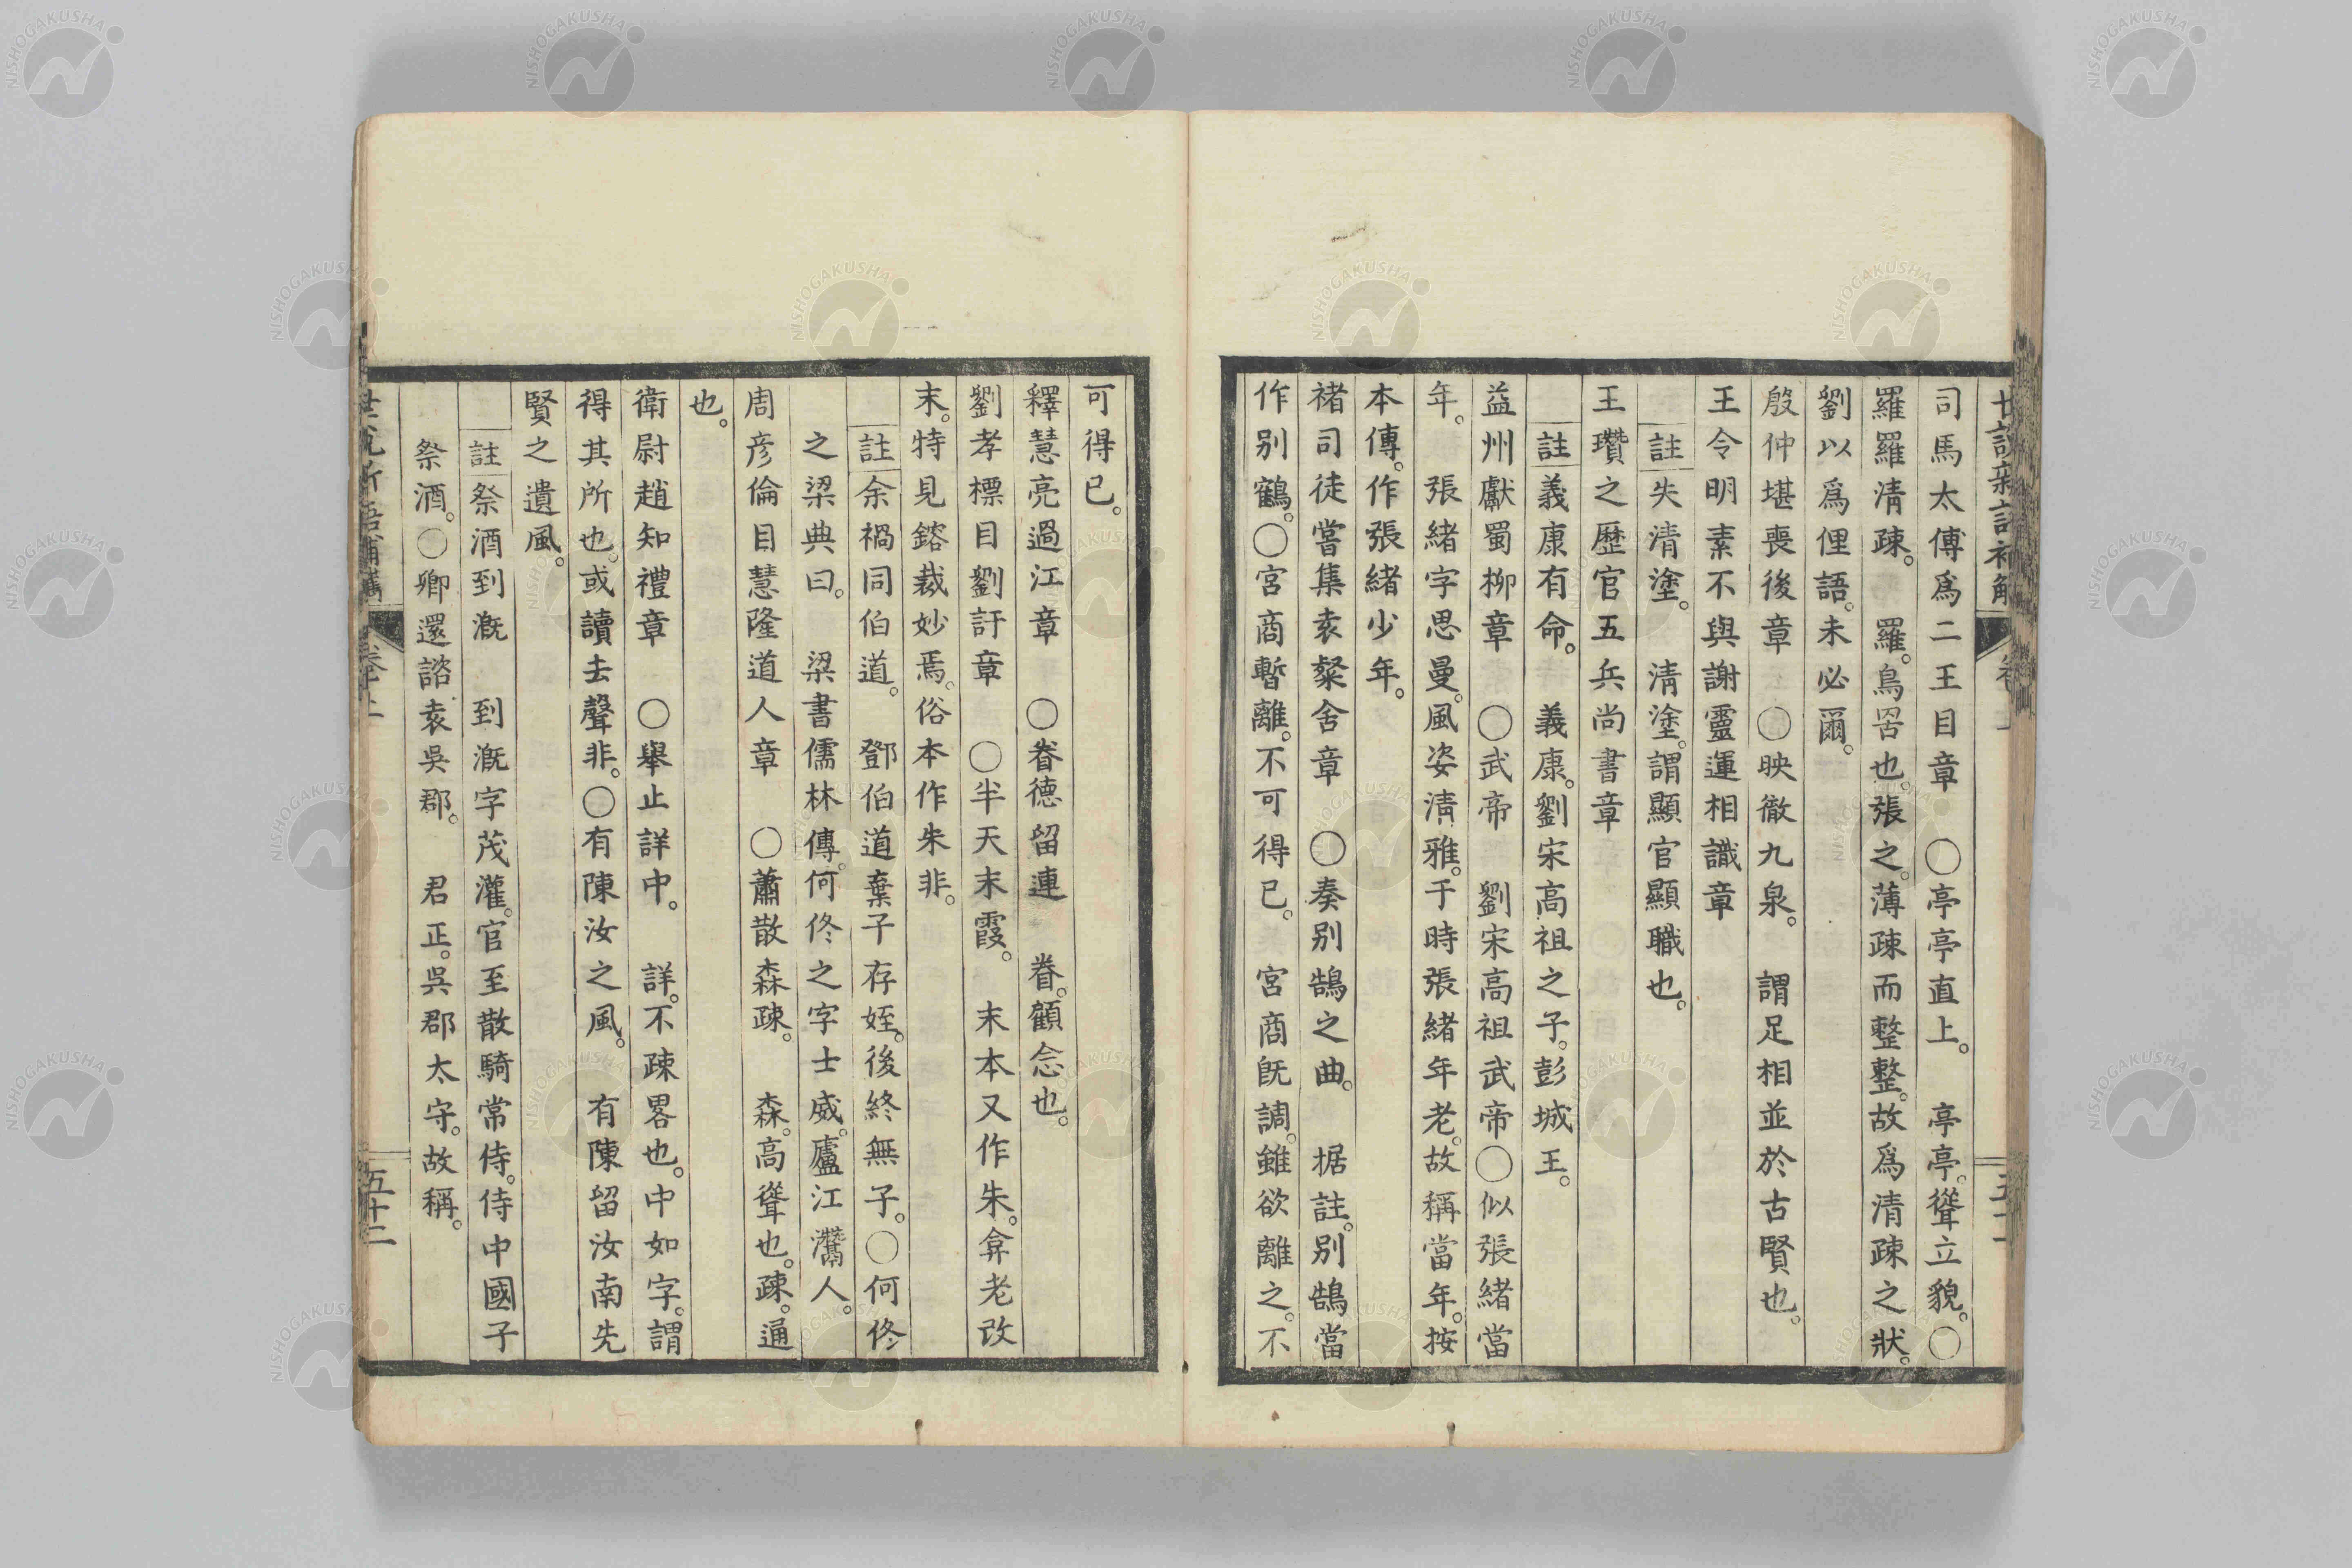 司馬太傅爲二王目章　〇亭亭直上。　亭亭。聳立貌。〇
羅羅淸疎。　羅。鳥罟也。張之。薄疎而整整。故爲清疎之狀。
劉以爲俚語。未必爾。
殷仲堪喪後章　〇映徹九泉。　謂足相並於古賢也。
王令明素不與謝靈運相識章
註失清塗。　淸塗。謂顯官顯職也。
王瓚之歷官五兵尚書章
註義康有命。　義康。劉宋高祖之子。彭城王。
益州獻蜀柳章　〇武帝　劉宋高祖武帝〇似張緒當
年。　張緒字思曼。風姿淸雅。于時張緒年老。故稱當年。按
本傳。作張緒少年。
褚司徒嘗集袁粲舍章　〇奏別鵠之曲。　据註。別鵠當
作別鶴。〇宮商暫離。不可得已。　宮商旣調。雖欲離之。不
可得已。
釋慧亮過江章　〇眷德留連　眷。顧念也。
劉孝標目劉訏章　〇半天末霞。　末本又作朱。弇老改
末。特見鎔裁妙焉。俗本作朱非。
註余禍同伯道。　鄧伯道棄子存姪。後終無子。〇何佟
之梁典曰。　梁書儒林傳。何佟之字士威。廬江灊人。
周彦倫目慧隆道人章　〇蕭散森疎。　森。高聳也。疎。通
也。
衛尉趙知禮章　〇舉止詳中。　詳。不疎畧也。中如字。謂
得其所也。或讀去聲非。〇有陳汝之風。　有陳留汝南先
賢之遺風。
註祭酒到漑　到漑字茂灌。官至散騎常侍。侍中國子
祭酒。〇卿還諮袁吳郡。　君正。吳郡太守。故稱。
五十二
NISHOGAKUSHA